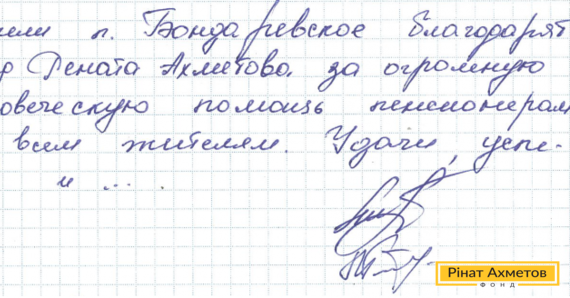 ели п. Бондаревское благодарят
р Рената Ахметова за огромную
овеческую помощь пенсионерам
всем жителям. Удачи, успе-
и ....
Рінат Ахметов
ФОНД